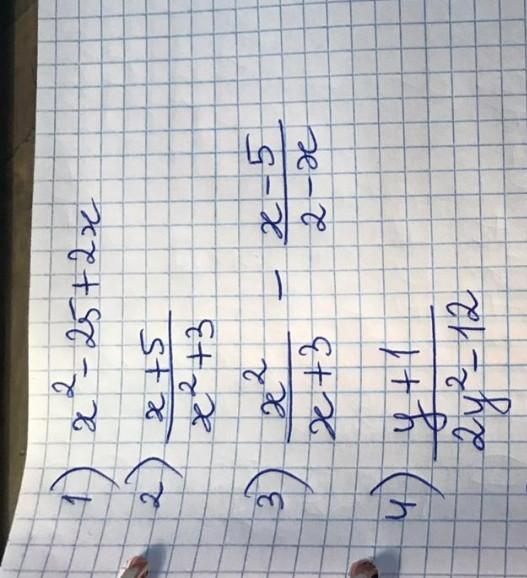 1) x² - 25 + 2x
2) (x + 5)/(x² + 3)
3) x²/(x + 3) - (x - 5)/(2 - x)
4) (y + 1)/(2y² - 12)